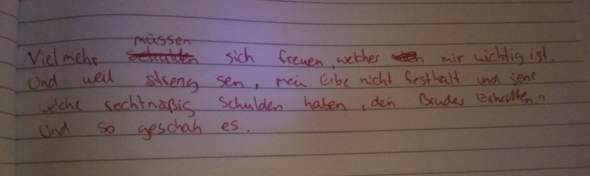 müssen
Vielmehr sich freuen, welcher mir wichtig ist.
Und weil streng sen, mein Erbe nicht festhält und jene
welche rechtmäßig Schulden haben, dein Bruder
Und so geschah es.